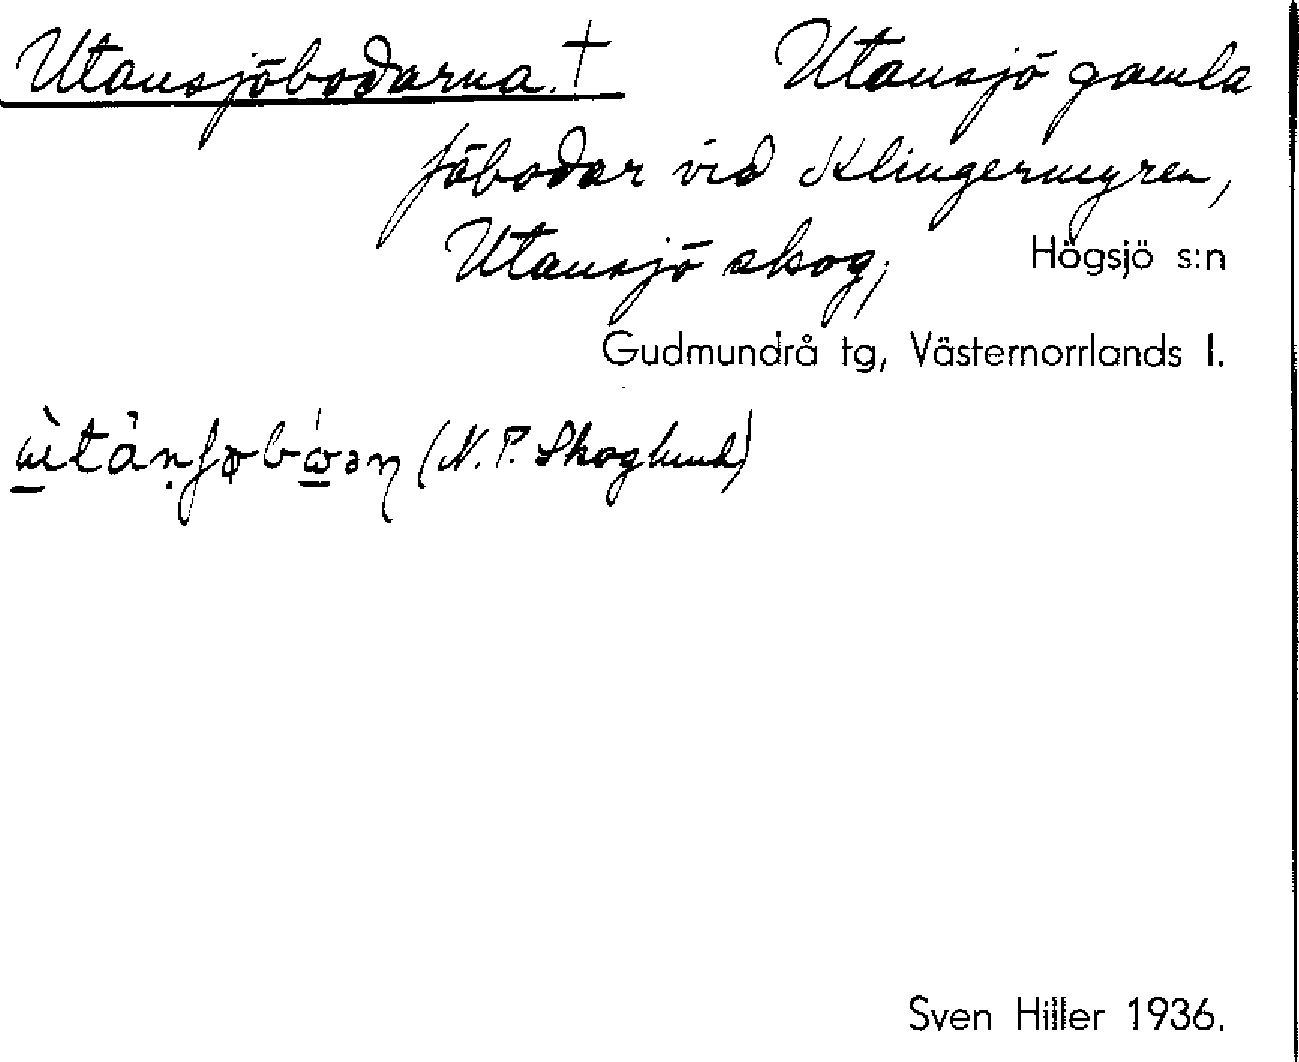 Utansjöbodarna. † Utansjö gamla
fäbodar vid Klingermyren,
Utansjö skog, Högsjö s:n
Gudmundrå tg, Västernorrlands l.
(N. P. Skoglund)
Sven Hiller 1936.